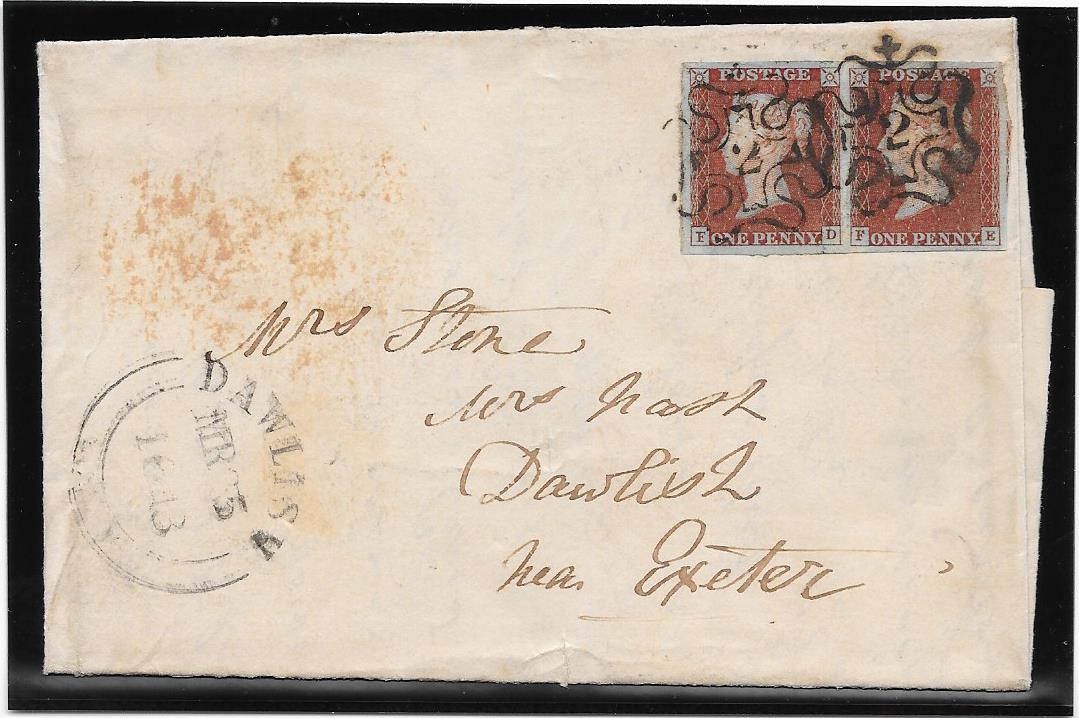 POSTAGE POSTAGE
2 2
F ONE PENNY D F ONE PENNY E
Mrs Stone
Mrs Nash
Dawlish
near Exeter
DAWLISH
MR 5
1843